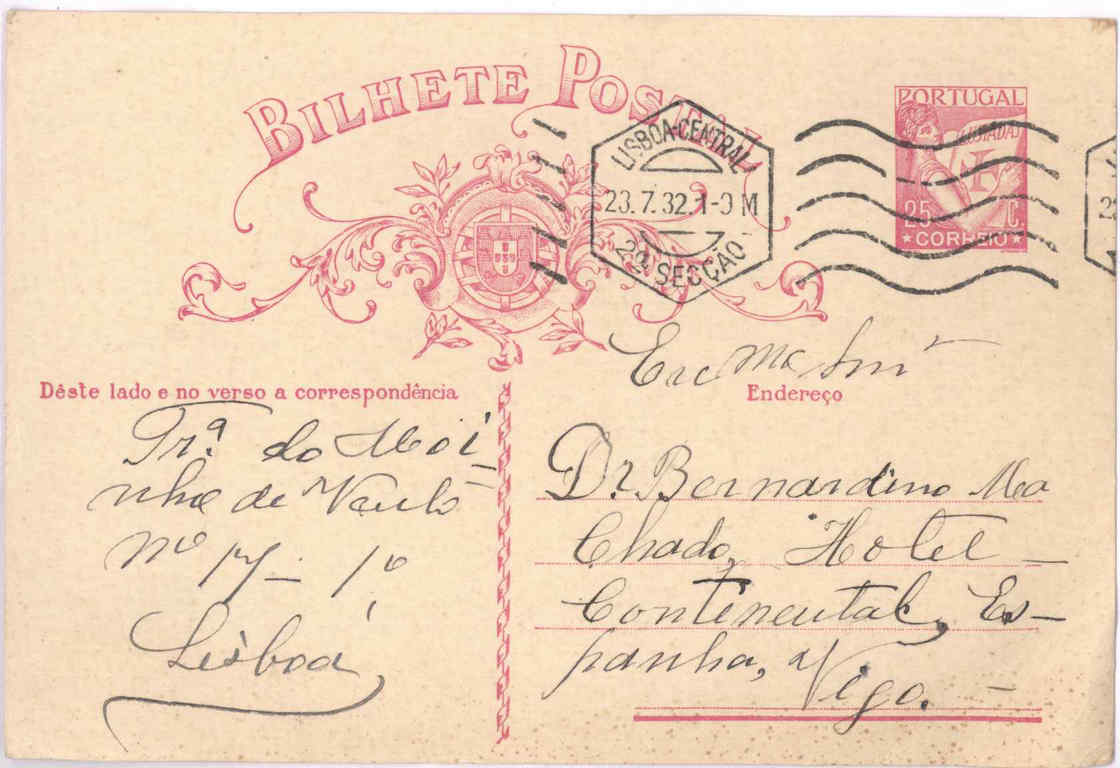 BILHETE POSTAL
PORTUGAL
LUSIADAS
I
25 C.
★ CORREIO ★
LISBOA-CENTRAL
23.7.32.1-0 M
2ª SECÇÃO
Dêste lado e no verso a correspondência
Endereço
Trª do Moi-
nho de Vento
Nº 17- 1º
Lisboa
Exc mo Snr
Dr Bernardino Ma
Chado, Hotel
Continental, Es-
panha, Vigo.